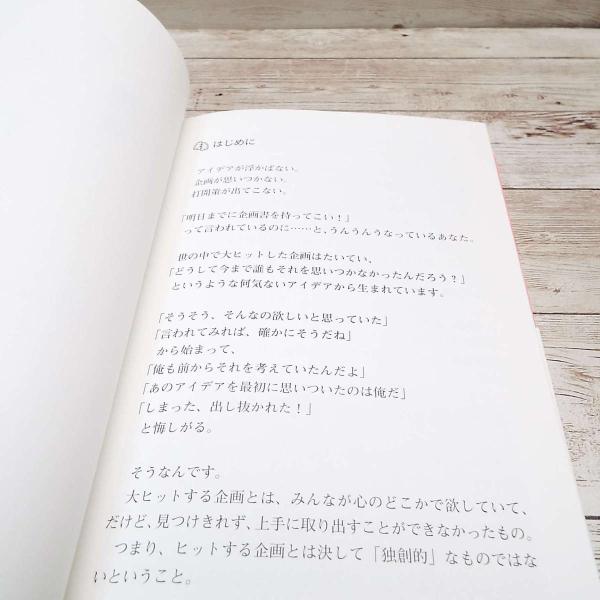 はじめに
アイデアが浮かばない。
企画が思いつかない。
打開策が出てこない。
「明日までに企画書を持ってこい！」
って言われているのに……と、うんうんうなっているあなた。
世の中で大ヒットした企画はたいてい、
「どうして今まで誰もそれを思いつかなかったんだろう？」
というような何気ないアイデアから生まれています。
「そうそう、そんなの欲しいと思っていた」
「言われてみれば、確かにそうだね」
から始まって、
「俺も前からそれを考えていたんだよ」
「あのアイデアを最初に思いついたのは俺だ」
「しまった、出し抜かれた！」
と悔しがる。
そうなんです。
大ヒットする企画とは、みんなが心のどこかで欲していて、
だけど、見つけきれず、上手に取り出すことができなかったもの。
つまり、ヒットする企画とは決して「独創的」なものではな
いということ。